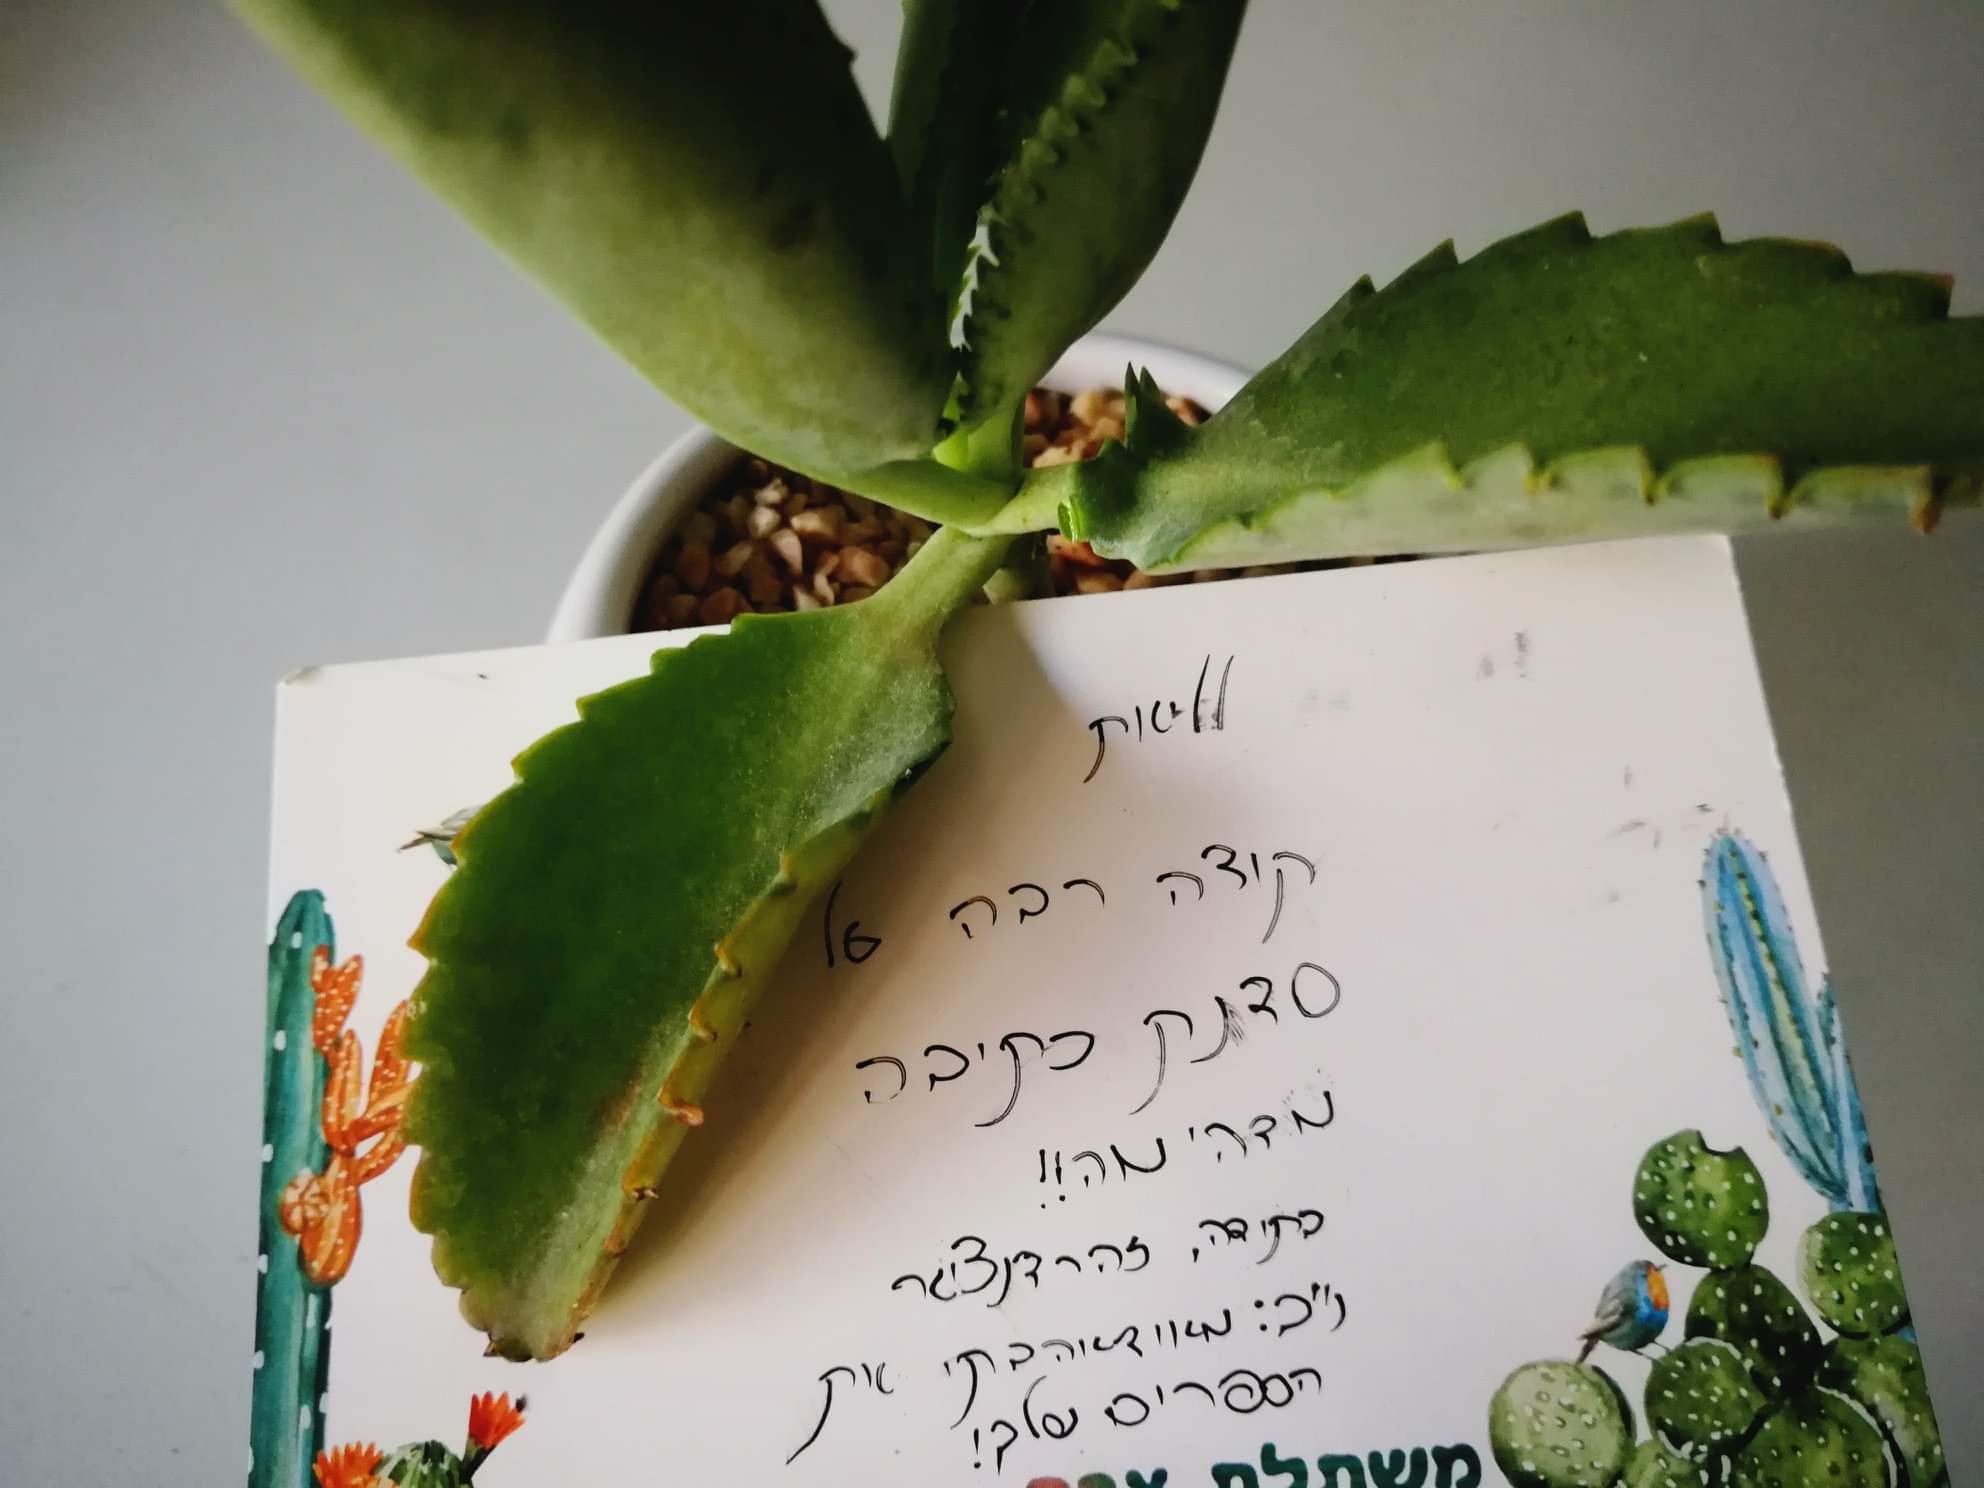 לליאת
תודה רבה על
סדנת כתיבה
מדהימה!!
בתודה, זהר דנציגר
נ"ב: מאוד אהבתי את
הספרים שלך!
משתלת